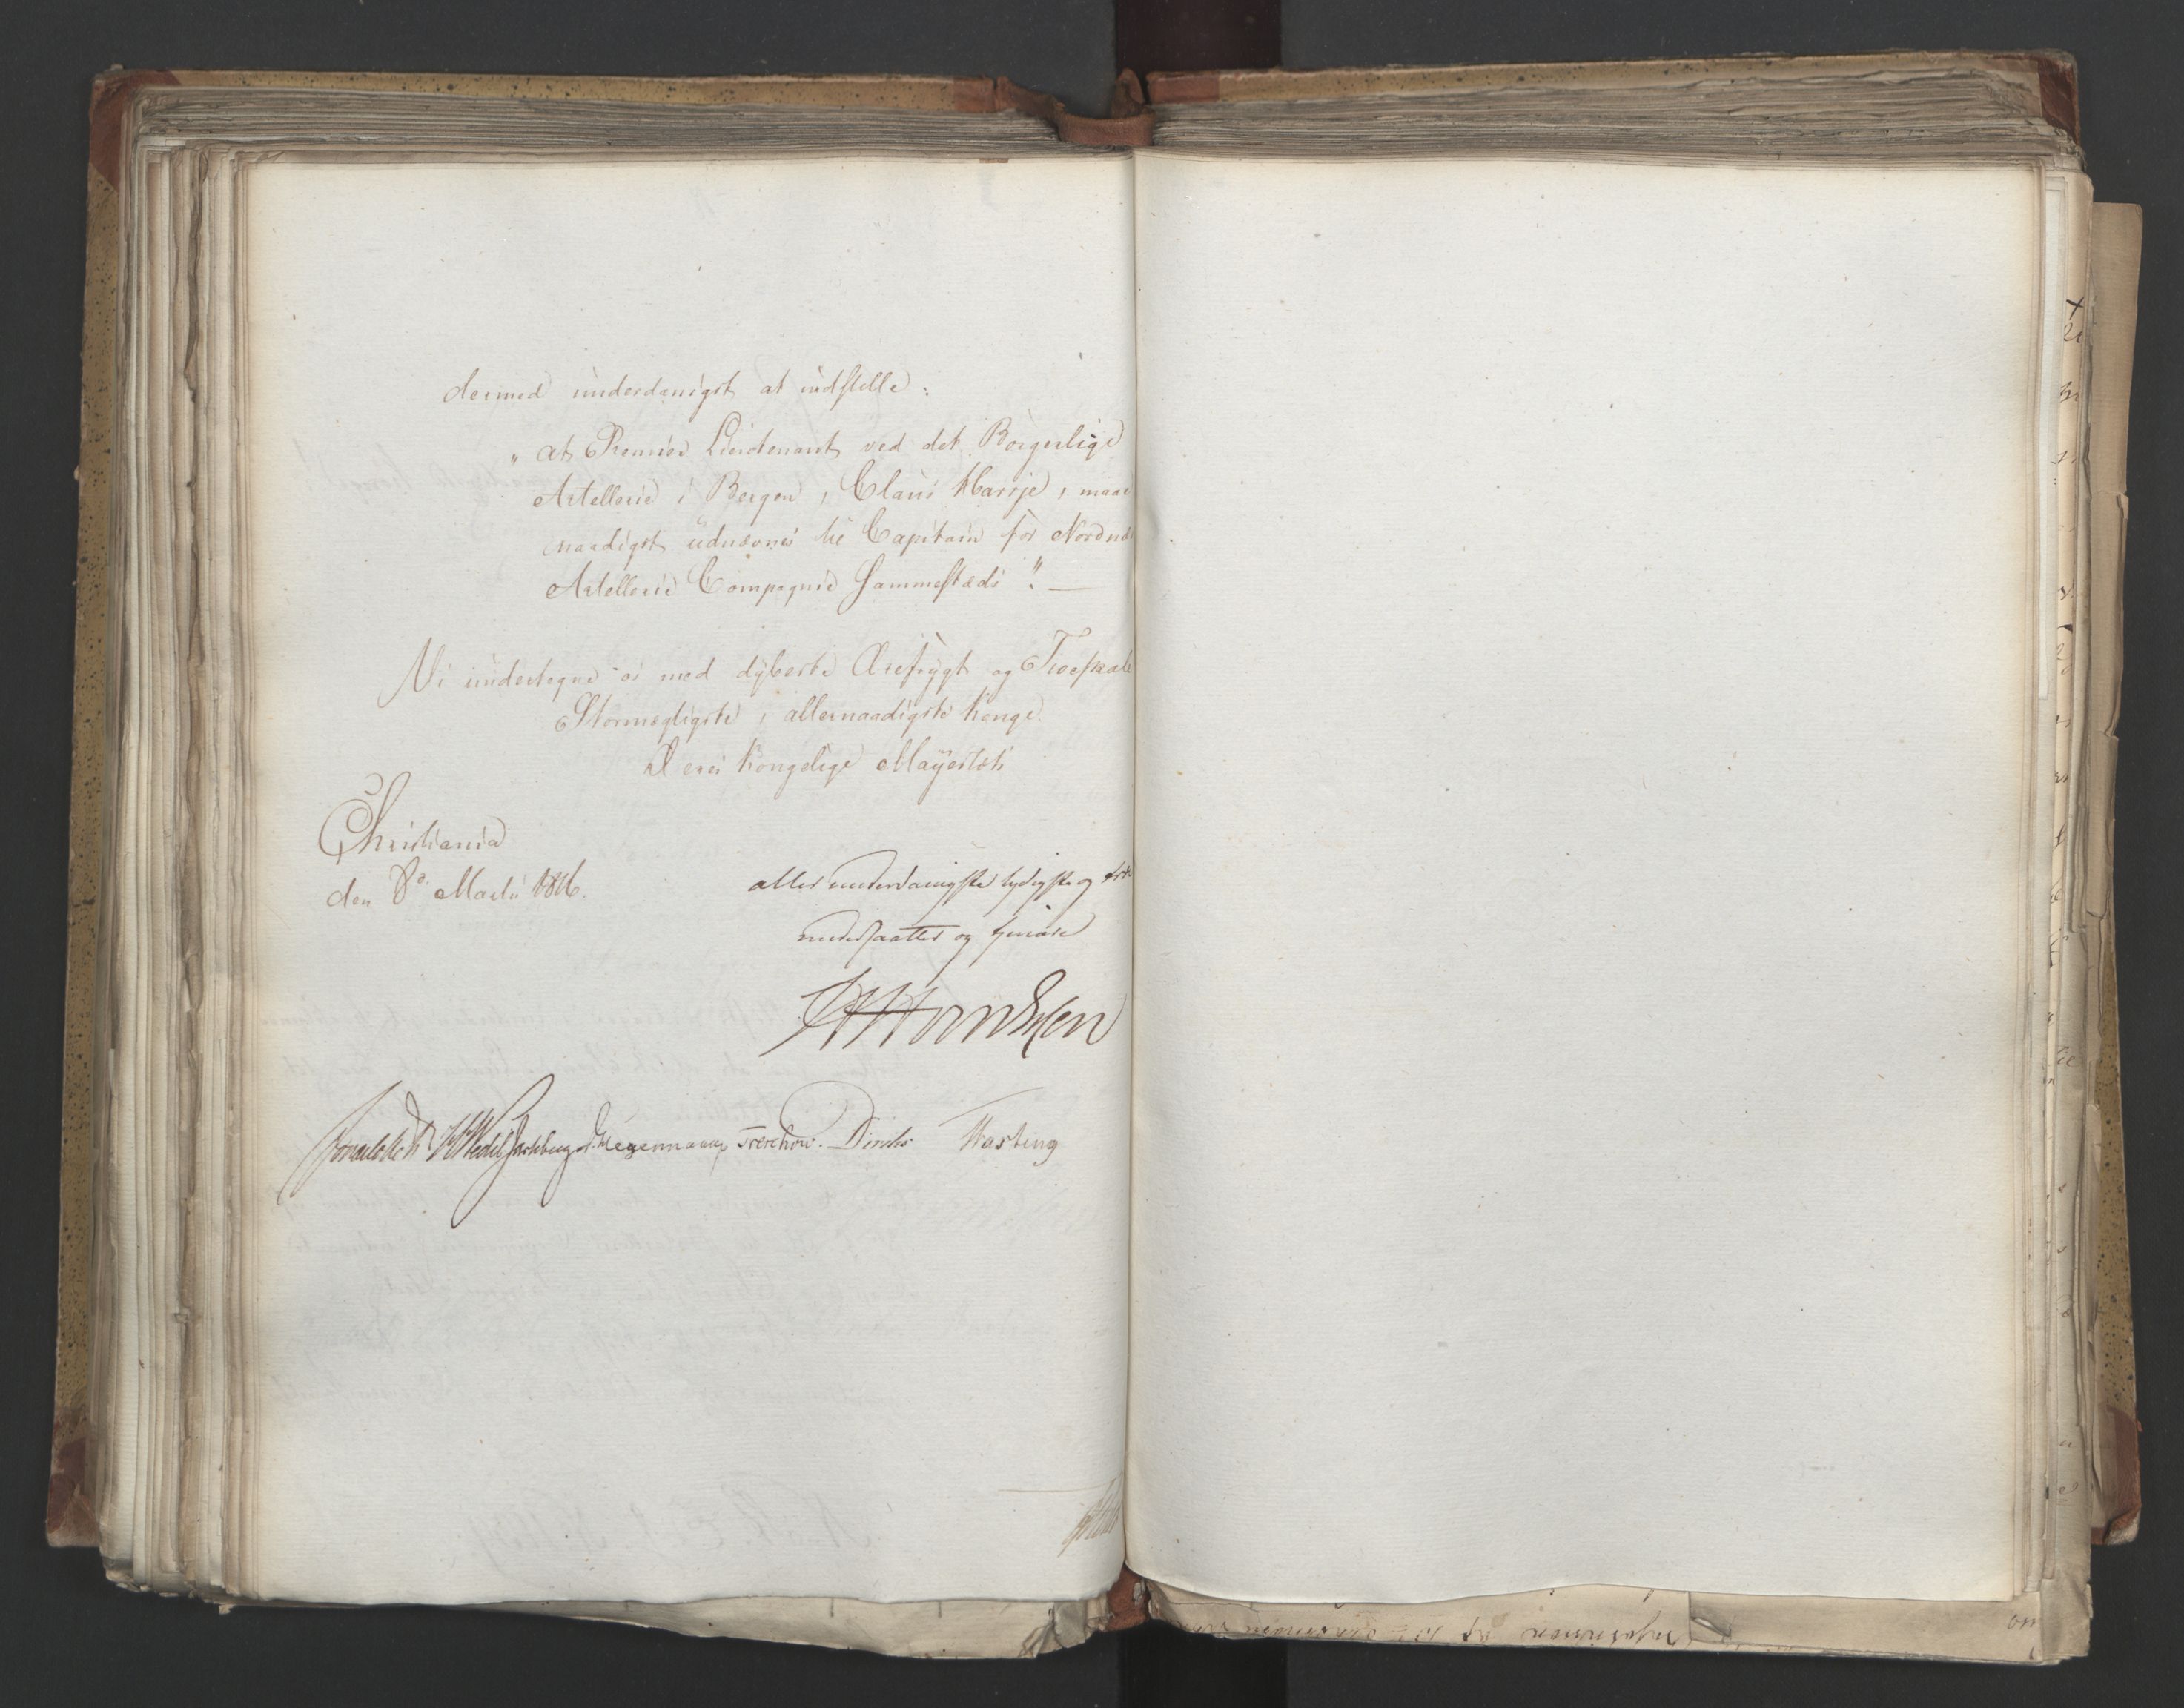 dermed underdanigst at indstille:
„at Premier Lieutenant ved det Borgerlige
Artellerie i Bergen, Claus Harije, maae
naadigst udnævnes til Capitain for Nordnæs
Artellerie Compagnie sammestæds". —
Vi undertegne os med dybeste Ærefrygt og Troeskab
Stormægtigste, allernaadigste Konge
Deres Kongelige Mayestæts
Christiania
den 8de Martii 1816.
aller underdanigste lydigste og
undersaatter og tienere
Sommerhielm Wedel Jarlsberg D. Hegermann Treschow. Diriks Hasting